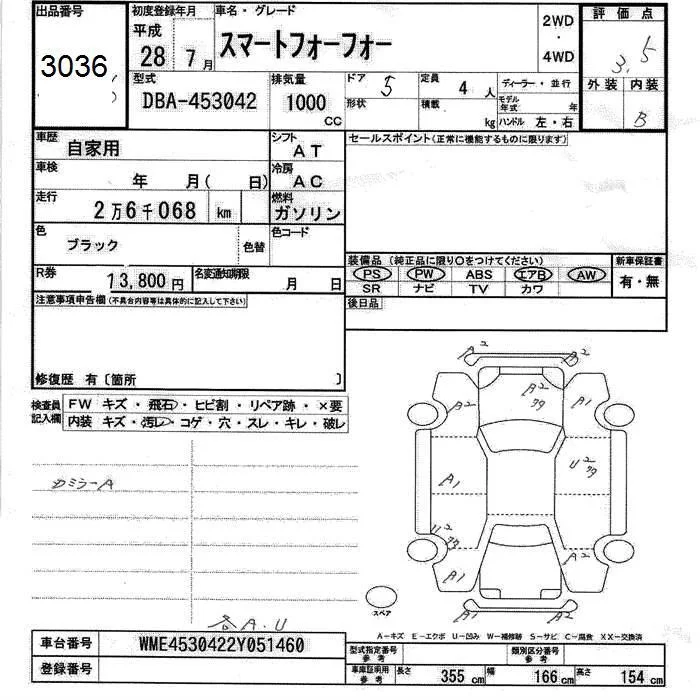 出品番号 初度登録年月 車名・グレード 評価点
3036 平成 28年 7月 スマートフォーフォー 2WD・4WD 3.5
型式 排気量 ドア 5 定員 4人 ディーラー・並行 外装 内装
DBA-453042 1000 CC 形状 積載 kg モデル年式 年 ハンドル 左・右 B
車歴 自家用 シフト AT セールスポイント(正常に機能するものに限ります)
車検 年 月( 日) 冷房 AC
走行 2万6千068 km 燃料 ガソリン
色 ブラック 色替 色コード
装備品 (純正品に限り〇をつけてください) 新車保証書
R券 13,800円 名変通知期限 月 日 PS PW ABS エアB AW 有・無
SR ナビ TV カワ
注意事項申告欄(不具合内容等は具体的に記入して下さい) 後日品
修復歴 有〔箇所 〕
検査員記入欄 FW キズ・飛石・ヒビ割・リペア跡・×要
内装 キズ・汚レ・コゲ・穴・スレ・キレ・破レ
A2 A2
A2 A2 タタ A1
A1 U2 タタ
カミラーA
U2 タタ A2
A1
スペア A2 A2
各A.U
A-キズ E-エクボ U-凹み W-補修跡 S-サビ C-腐食 XX-交換済
車台番号 WME4530422Y051460 型式指定番号 参考 類別区分番号 参考
登録番号 車庫証明用 参考 長さ 355 cm 幅 166 cm 高さ 154 cm